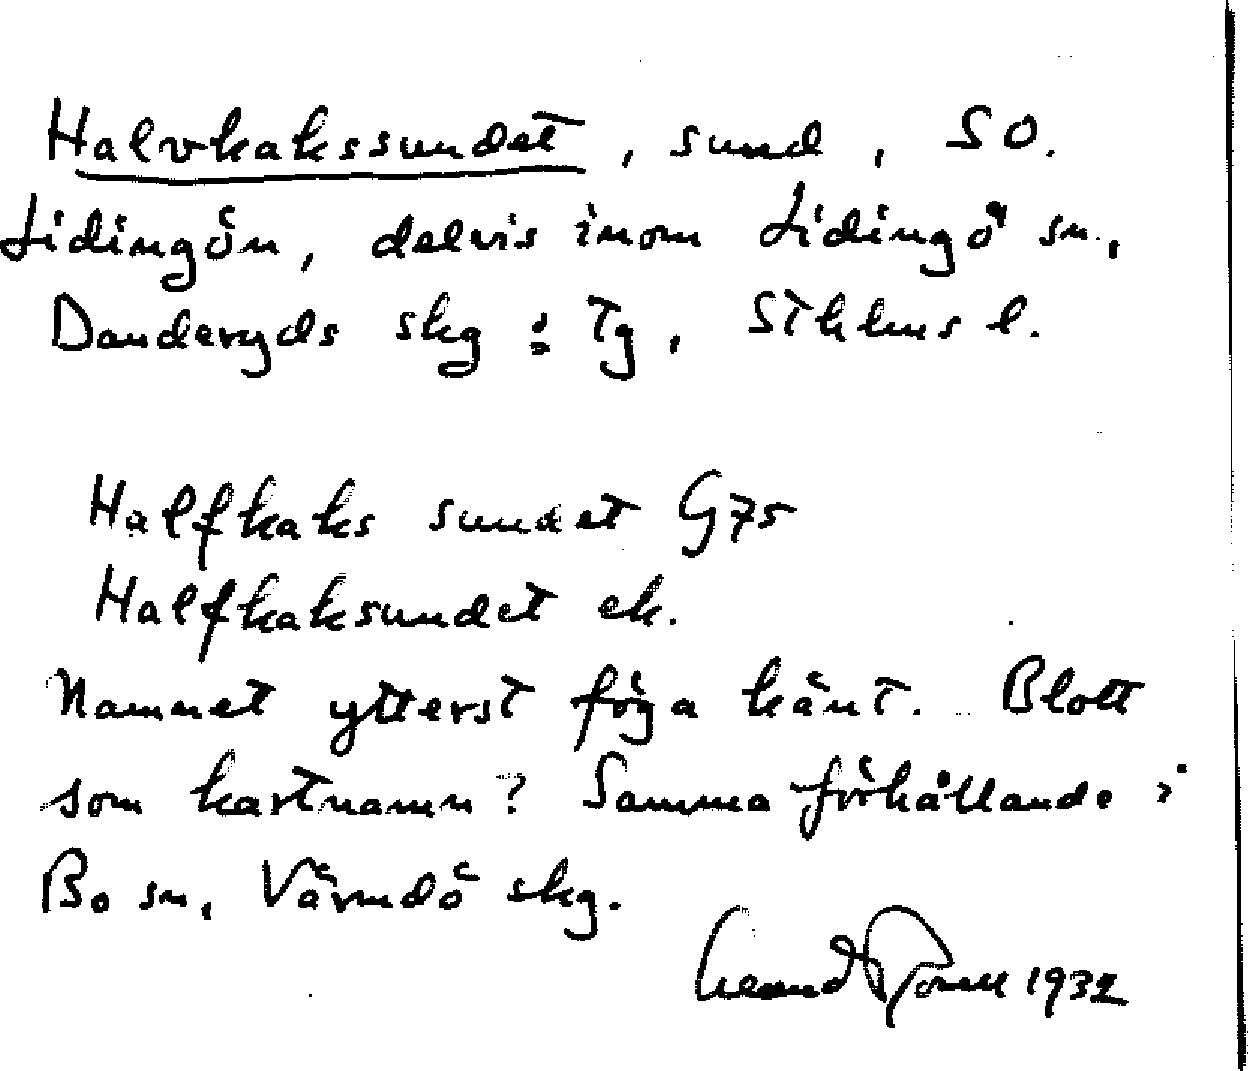 Halvkakssundet, sund, SO.
Lidingön, delvis inom Lidingö sn.,
Danderyds skg :: Tg, Sthlms l.
Halfkaks sundet G75
Halfkaksundet ek.
Namnet ytterst föga känt. Blott
som kartnamn? Samma förhållande i
Bo sn, Värmdö skg.
1932